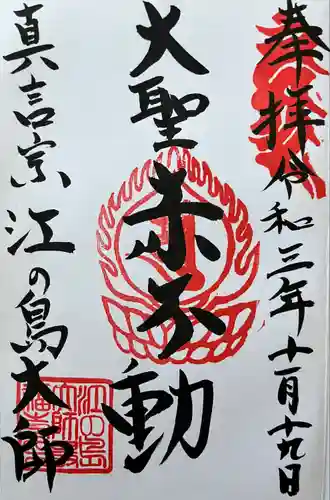 奉拝
令和三年十一月十九日
大聖赤不動
真言宗江の島大師